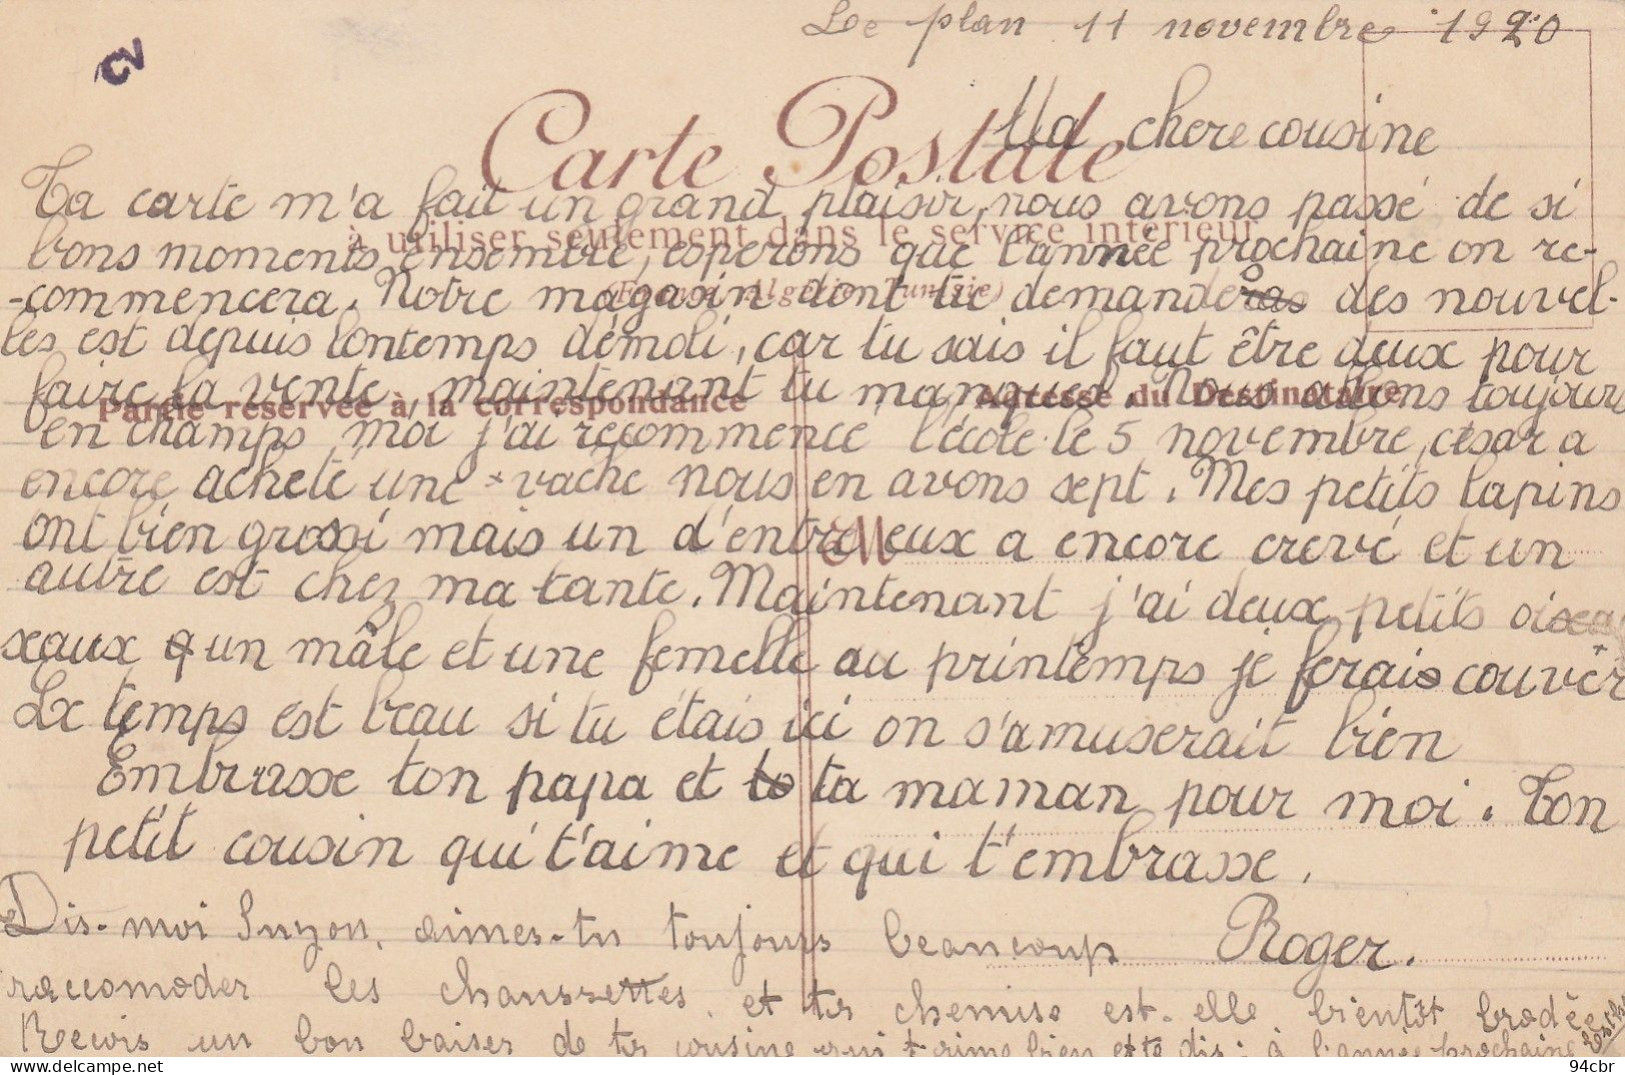 Le plan 11 novembre 1920
CV
Carte Postale
Ma chere cousine
à utiliser seulement dans le service intérieur
(France, Algérie, Tunisie)
Partie réservée à la correspondance
Adresse du Destinataire
M
Ta carte m'a fait un grand plaisir, nous avons passé de si
bons moments ensemble, esperons que l'année prochaine on re-
-commencera. Notre magasin dont tu demanderas des nouvel-
les est depuis lontemps démoli, car tu sais il faut être deux pour
faire la vente, maintenant tu manques. Nous allons toujours
en champs moi j'ai recommence l'école le 5 novembre, césar a
encore acheté une vache nous en avons sept. Mes petits lapins
ont bien grossi mais un d'entre eux a encore crevé et un
autre est chez ma tante. Maintenant j'ai deux petits oi
seaux un mâle et une femelle au printemps je ferais couvèr
Le temps est beau si tu étais ici on s'amuserait bien
Embrasse ton papa et ta maman pour moi. Ton
petit cousin qui t'aime et qui t'embrasse.
Dis-moi Suzon, aimes-tu toujours beaucoup Roger.
raccomoder les chaussettes, et ta chemise est-elle bientôt brodée
Recois un bon baiser de ta cousine qui t'aime bien et te dis: à l'année prochaine
94cbr